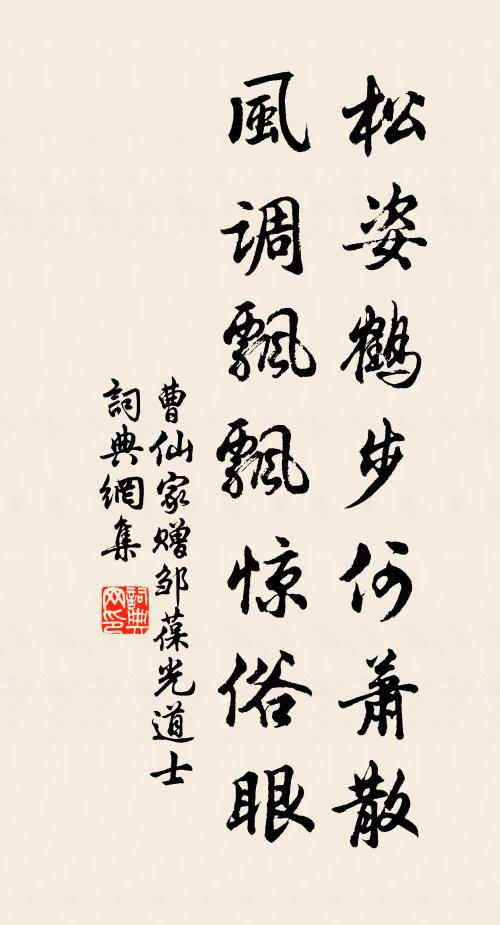 松姿鶴步何蕭散
風调飄飄惊俗眼
曹仙家赠邹葆光道士
詞典網集
詞典网印